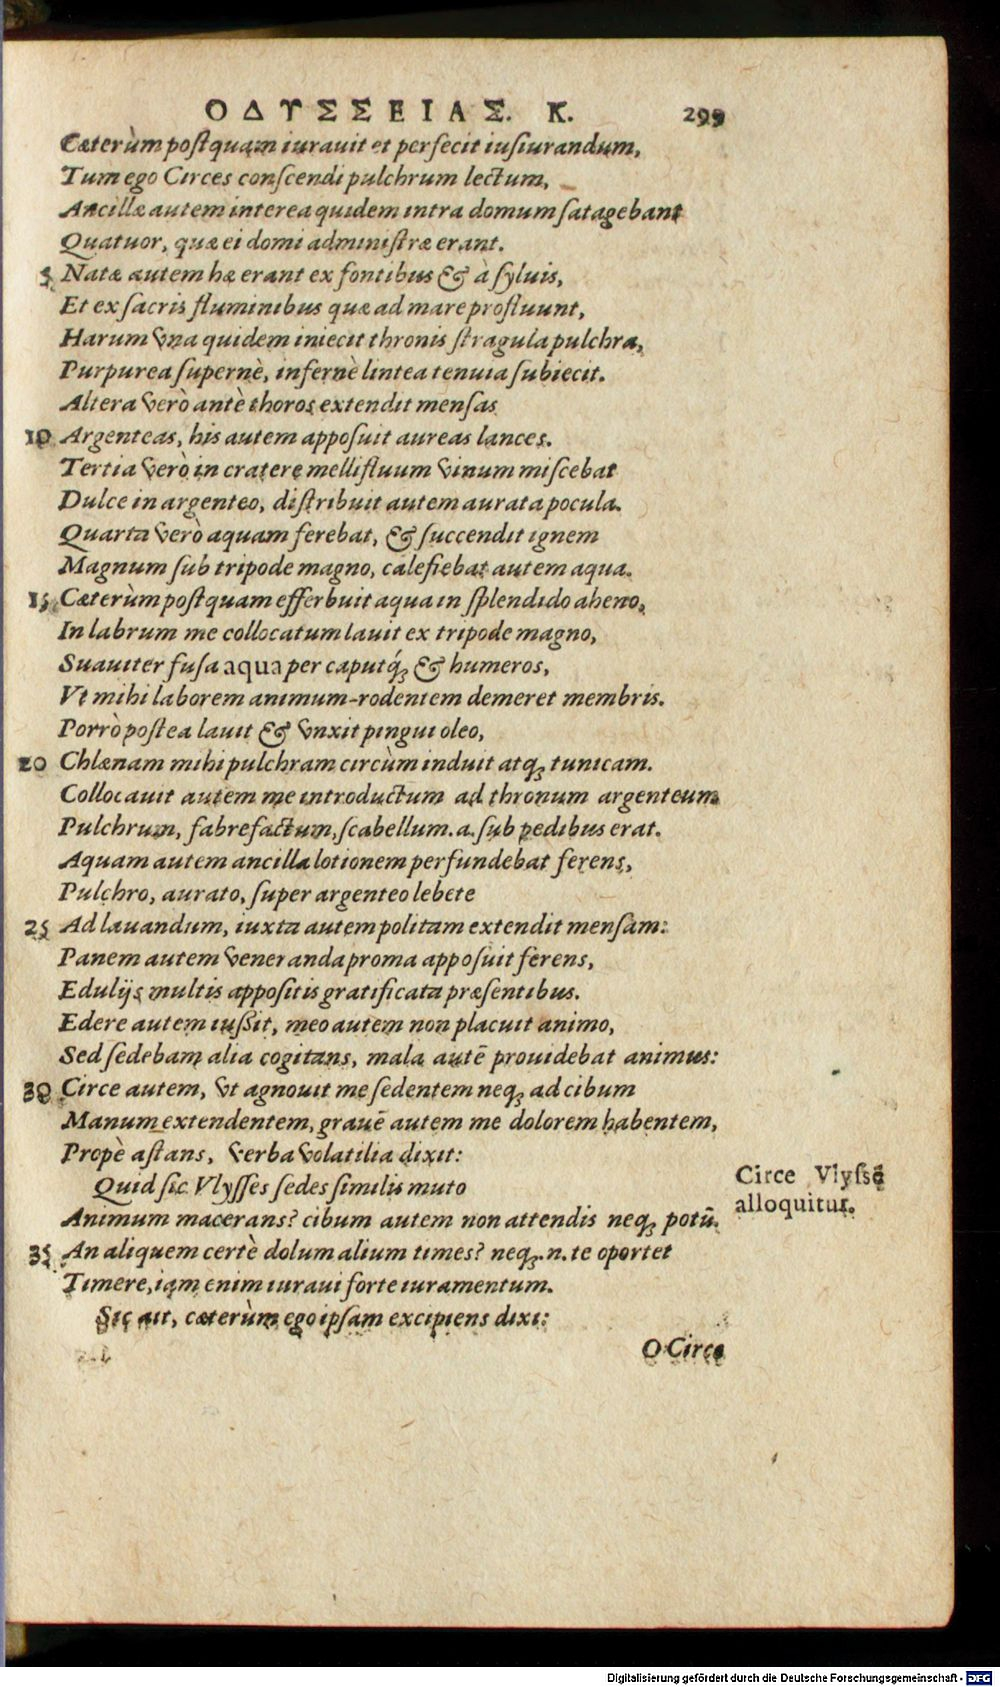 ΟΔΥΣΣΕΙΑΣ. Κ. 299
Cæterùm postquam iurauit et perfecit iusiurandum,
Tum ego Circes conscendi pulchrum lectum,
Ancillæ autem interea quidem intra domum satagebant
Quatuor, quæ ei domi administræ erant.
5 Natæ autem hæ erant ex fontibus & à syluis,
Et ex sacris fluminibus quæ ad mare profluunt,
Harum vna quidem iniecit thronis stragula pulchra,
Purpurea supernè, infernè lintea tenuia subiecit.
Altera verò antè thoros extendit mensas
10 Argenteas, his autem apposuit aureas lances.
Tertia verò in cratere mellifluum vinum miscebat
Dulce in argenteo, distribuit autem aurata pocula.
Quarta verò aquam ferebat, & succendit ignem
Magnum sub tripode magno, calefiebat autem aqua.
15 Cæterùm postquam efferbuit aqua in splendido aheno,
In labrum me collocatum lauit ex tripode magno,
Suauiter fusa aqua per caputq́; & humeros,
Vt mihi laborem animum-rodentem demeret membris.
Porrò postea lauit & vnxit pingui oleo,
20 Chlænam mihi pulchram circùm induit atq; tunicam.
Collocauit autem me introductum ad thronum argenteum
Pulchrum, fabrefactum, scabellum .a. sub pedibus erat.
Aquam autem ancilla lotionem perfundebat ferens,
Pulchro, aurato, super argenteo lebete
25 Ad lauandum, iuxta autem politam extendit mensam:
Panem autem veneranda proma apposuit ferens,
Edulijs multis appositis gratificata præsentibus.
Edere autem iußit, meo autem non placuit animo,
Sed sedebam alia cogitans, mala autẽ prouidebat animus:
30 Circe autem, vt agnouit me sedentem neq; ad cibum
Manum extendentem, grauẽ autem me dolorem habentem,
Propè astans, verba volatilia dixit:
Quid sic Vlysses sedes similis muto
Circe Vlyssẽ
alloquitur.
Animum macerans? cibum autem non attendis neq; potũ.
35 An aliquem certè dolum alium times? neq; .n. te oportet
Timere, iam enim iuraui forte iuramentum.
Sic ait, cæterùm ego ipsam excipiens dixi:
O Circe
Digitalisierung gefördert durch die Deutsche Forschungsgemeinschaft - DFG